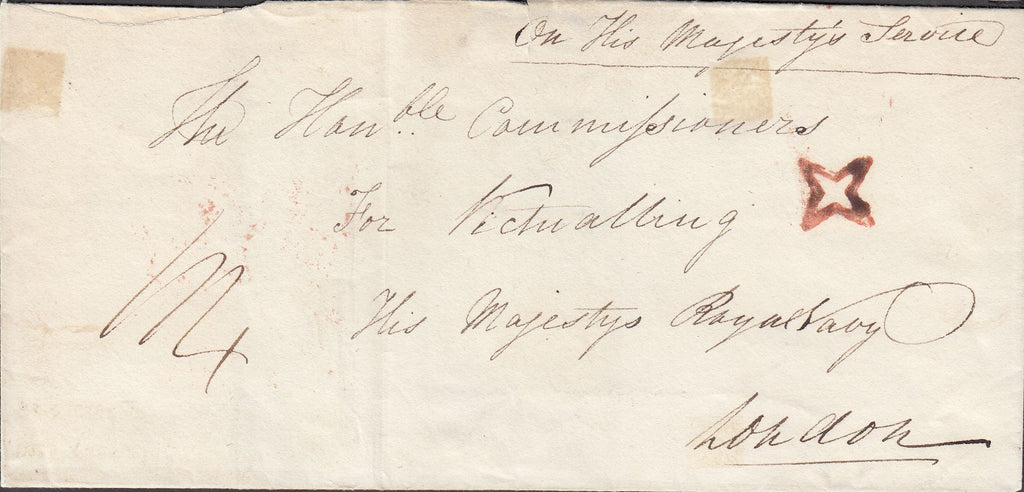 On His Majesty's Service
The Hon.ble Commissioners
For Victualling
His Majestys Royal Navy
London